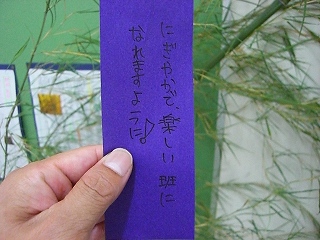 にぎやかで、楽しい班に
なれますように♪